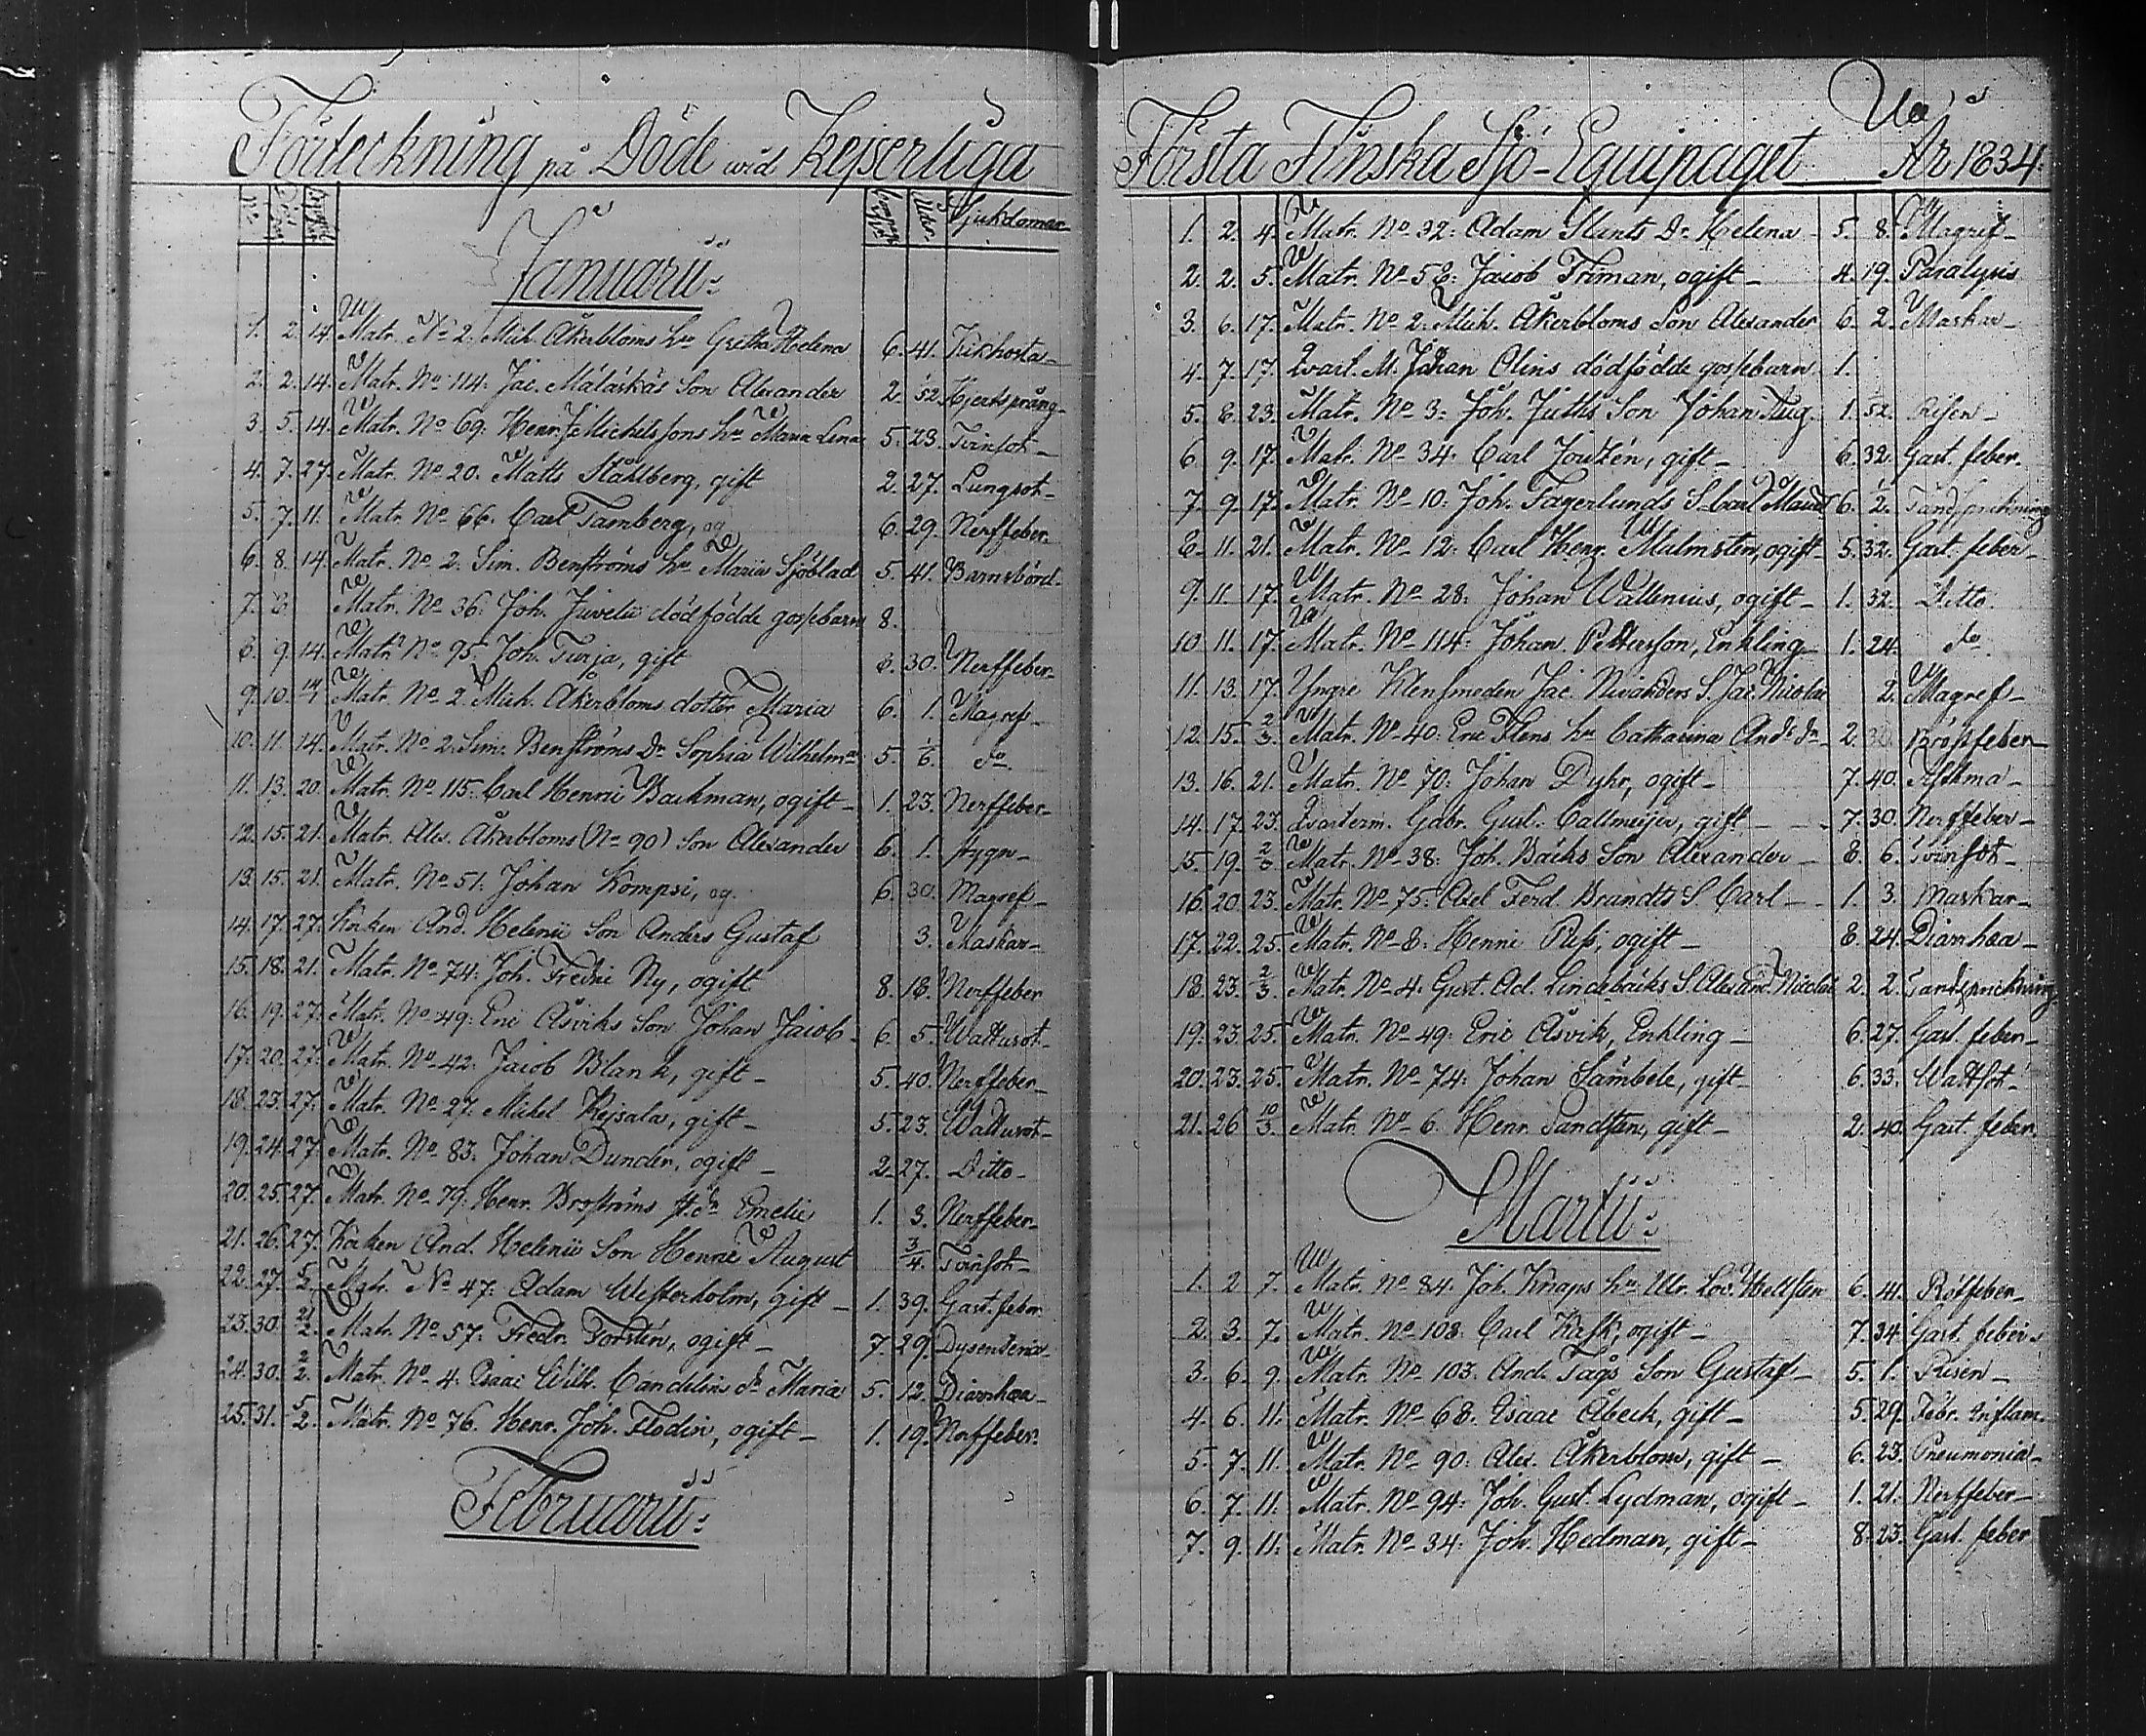 Förteckning på Döde wid Kejserliga
No Sjukdomar
Januarii:
1. 2. 14. Matr. No 2. Mich. Åkerbloms hu Gretha Helena 6. 41. Kikhosta
2. 2. 14. Matr. No 114. Jac. Måtåskås Son Alexander 2. 1/52 Hjertsprång
3. 5. 14. Matr. No 69: Henr. J: Michelssons hu Maria Lena 5. 23. Tvinsot
4. 7. 27. Matr. No 20. Matts Ståhlberg, gift 2. 27. Lungsot
5. 7. 11. Matr. No 66. Carl Tamberg, og 6. 29. Nerffeber
6. 8. 14. Matr. No 2. Sim. Benströms hu Maria Sjöblad 5. 41. Barnsbörd
7. 8 Matr. No 36: Joh. Juvelii dödfödde gossebarn 8.
8. 9. 14. Matr. No 95. Joh. Turja, gift 8. 30. Nerffeber
9. 10. 14/1 Matr. No 2. Mich. Åkerbloms dotter Maria 6. 1. Magref
10. 11. 14. Matr. No 2. Sim. Benströms Dr Sophia Wilhelma 5. 1/6. do
11. 13. 20. Matr. No 115. Carl Henric Backman, ogift 1. 23. Nerffeber
12. 15. 21. Matr. Alex. Åkerbloms (No 90) Son Alexander 6. 1. Stygn
13. 15. 21. Matr. No 51. Johan Kompsi, og. 6. 30. Magref
14. 17. 27. Kocken And. Helenii Son Anders Gustaf 3. Maskar
15. 18. 21. Matr. No 74. Joh. Fredric Ny, ogift 8. 18. Nerffeber
16. 19. 27. Matr. No 49: Eric Åsviks Son Johan Jacob 6. 5. Wattusot
17. 20. 27. Matr. No 42. Jacob Blank, gift 5. 40. Nerffeber
18. 23. 27. Matr. No 27. Michel Kejsala, gift 5. 23. Wattusot
19. 24. 27. Matr. No 83. Johan Dunder, ogift 2. 27. Ditto
20. 25. 27. Matr. No 79. Henr. Broströms Emelie 1. 3. Nerffeber
21. 26. 27. Kocken And. Helenii Son Henric August 3/4. Tvinsot
22. 27. 5/2. Matr. No 47. Adam Westerholm, gift 1. 39. Gast. feber
23. 30. 21/2. Matr. No 57. Fredr. Forstén, ogift 7. 29. Dysenteria
24. 30. 2/2. Matr. No 4. Isaac Wilh. Candelins dr Maria 5. 12. Diarrhæa
25. 31. 5/2. Matr. No 76. Henr. Joh. Flodin, ogift 1. 19. Nerffeber
Februarii:
Första Finska Sjö-Equipaget År 1834.
1. 2. 4. Matr. No 32: Adam Slants Dr Helena 5. 8. Magref
2. 2. 5. Matr. No 58: Jacob Friman, ogift 4. 19. Paralysis
3. 6. 17. Matr. No 2. Mich. Åkerbloms Son Alexander 6. 2. Maskar
4. 7. 17. Qvart. M. Johan Olins dödfödde gossebarn 1.
5. 8. 23. Matr. No 3. Joh. Juths Son Johan Aug. 1. 1/52. Risen
6. 9. 17. Matr. No 34. Carl Joutzén, gift 6. 32. Gast. feber
7. 9. 17. Matr. No 10. Joh. Fagerlunds S. Carl 6. 1/2. Tandsprickning
8. 11. 21. Matr. No 12. Carl Henr. Malmsten, ogift 5. 32. Gast. feber
9. 11. 17. Matr. No 28: Johan Wallenius, ogift 1. 32. Ditto.
10. 11. 17. Matr. No 114: Johan Pettersson, Enkling 1. 24. do
11. 13. 17. Yngre Klensmeden Jac. Nivanders S. Jac. Nicolai 2. Magref
12. 15. 2/3. Matr. No 40. Eric Flens hu Catharina And: dr 2. 30. Bröstfeber
13. 16. 21. Matr. No 70. Johan Dyhr, ogift 7. 40. Asthma
14. 17. 23. Qvarterm. Gabr. Gust. Callmeijer, gift 7. 30. Nerffeber
15. 19. 2/3 Matr. No 38. Joh. Bäcks Son Alexander 8. 6. Tvinsot
16. 20. 23. Matr. No 75. Axel Ferd. Brandts S. Carl 1. 3. Maskar
17. 22. 25. Matr. No 8: Henric Piss, ogift 8. 24. Diarrhæa
18. 23. 2/3. Matr. No 4. Gust. Ad. Lindebäcks S. Alexand. Nicolai 2. 2. Tandsprickning
19. 23. 25. Matr. No 49. Eric Åsvik, Enkling 6. 27. Gast. feber
20. 23. 25. Matr. No 74: Johan Sämbele, gift 6. 33. Wattsot
21. 26. 10/3. Matr. No 6. Henr. Sandsten, gift 2. 40. Gast. feber
Martii:
1. 2. 7. Matr. No 84. Joh. Knaps hu Ulr. Lov. Hellsten 6. 41. Rötfeber
2. 3. 7. Matr. No 108: Carl Kask, ogift 7. 34. Gast. feber
3. 6. 9. Matr. No 103. And. Tågs Son Gustaf 5. 1. Risen
4. 6. 11. Matr. No 68. Isaac Åbeck, gift 5. 29. Febr. Inflam.
5. 7. 11. Matr. No 90. Alex. Åkerblom, gift 6. 23. Pneumonia
6. 7. 11. Matr. No 94. Joh. Gust. Lydman, ogift 1. 21. Nerffeber
7. 9. 11. Matr. No 34: Joh. Hedman, gift 8. 23. Gast. feber